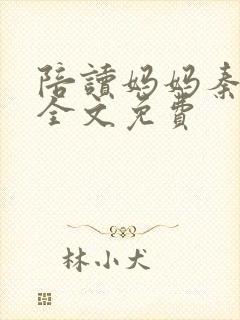 陪讀媽媽秦
全文免費
林小犬